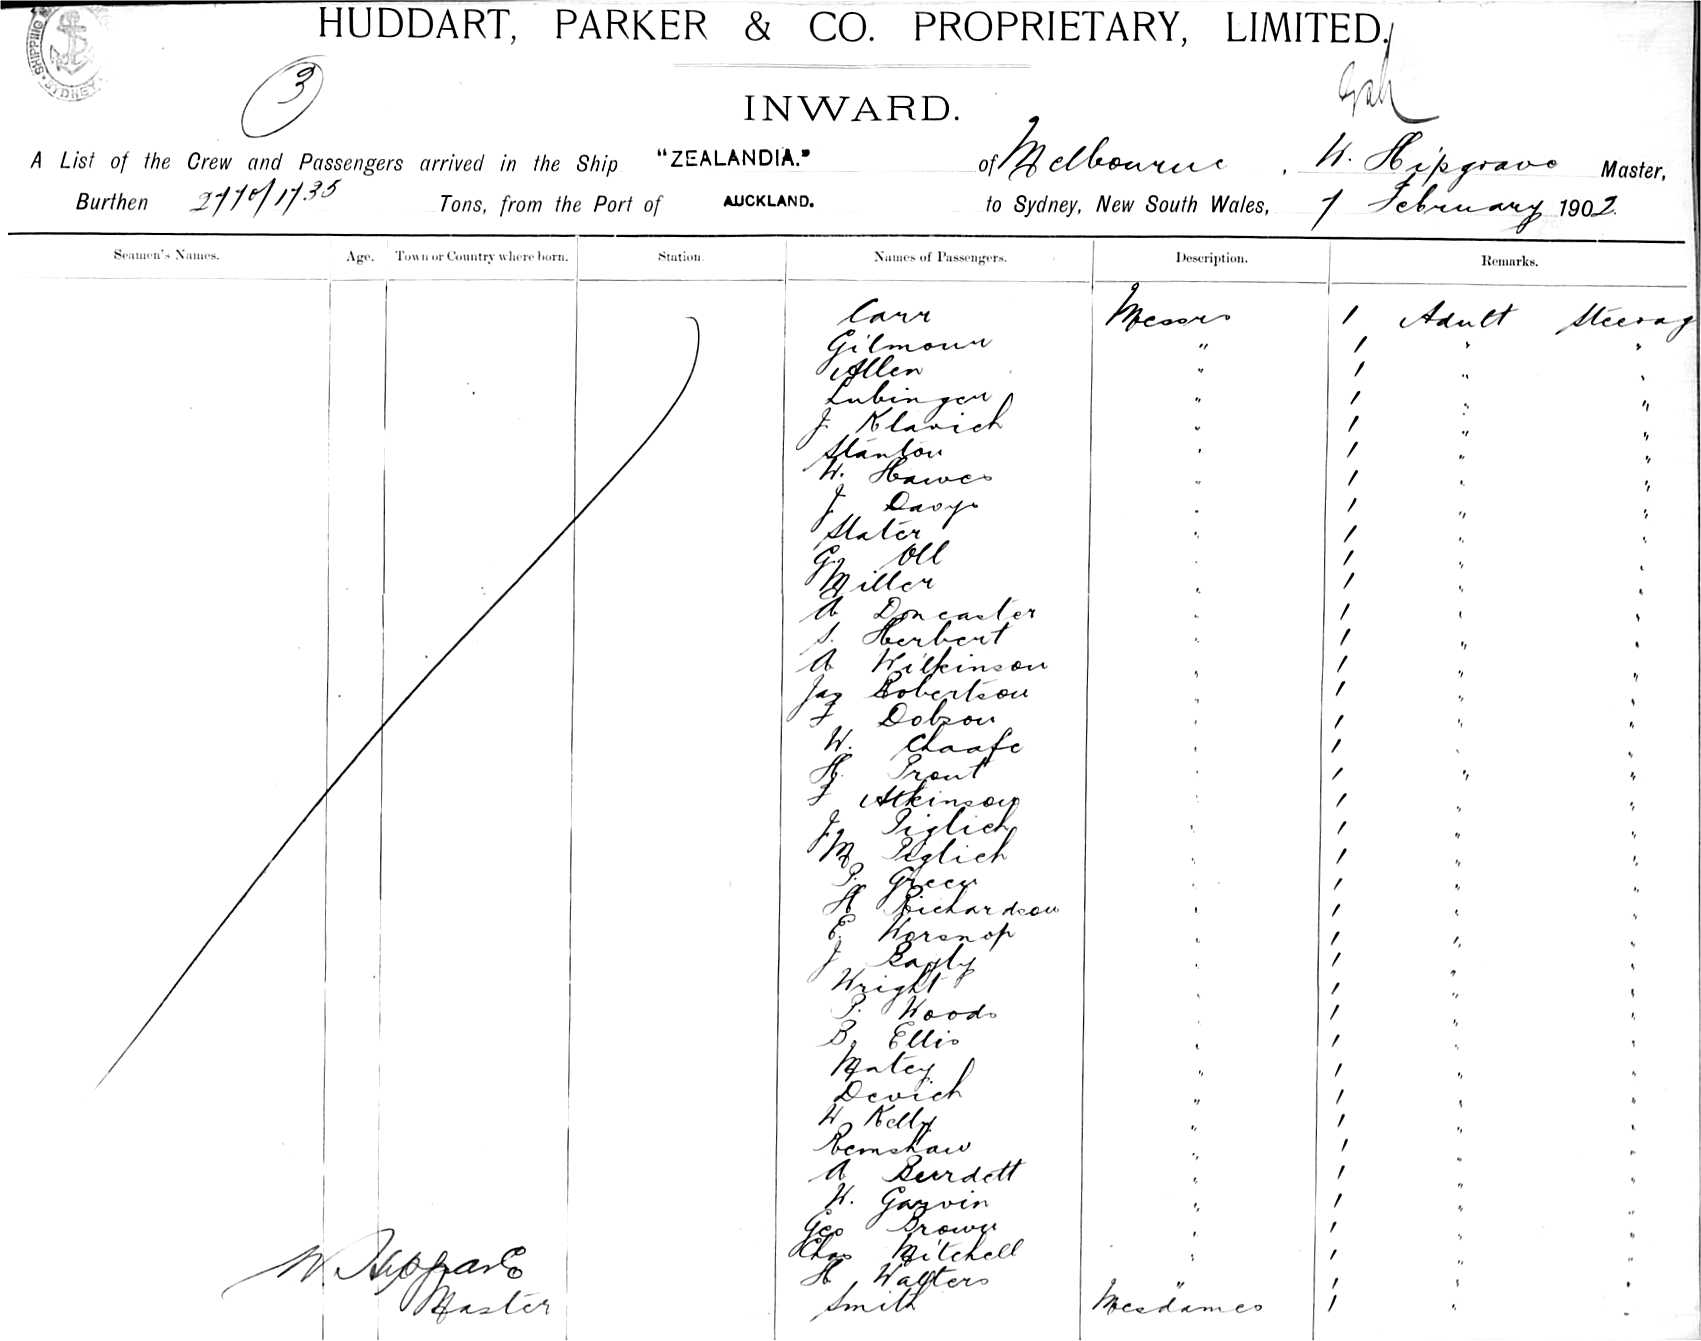 HUDDART, PARKER & CO. PROPRIETARY, LIMITED.
SHIPPING
SYDNEY
3
INWARD.
A List of the Crew and Passengers arrived in the Ship "ZEALANDIA." of Melbourne, W. Hipgrave Master,
Burthen 2770/1735 Tons, from the Port of AUCKLAND. to Sydney, New South Wales, 7 February 1902.
Seamen's Names. Age. Town or Country where born. Station Names of Passengers. Description. Remarks.
Carr Messrs 1 Adult Steerag
Gilmour " 1 " "
Allen " 1 " "
Lubinger " 1 " "
J Klavich " 1 " "
Stanton " 1 " "
W. Hawes " 1 " "
J Davys " 1 " "
Slater " 1 " "
G Oll " 1 " "
Miller " 1 " "
A Doncaster " 1 " "
S. Herbert " 1 " "
A Wilkinson " 1 " "
Jas Robertson " 1 " "
F Dobson " 1 " "
W. Chaafe " 1 " "
H. Prout " 1 " "
F Atkinson " 1 " "
J Piglich " 1 " "
M Piglich " 1 " "
P. Green " 1 " "
H Richardson " 1 " "
E. Worsnop " 1 " "
J Bayly " 1 " "
Wright " 1 " "
P. Woods " 1 " "
B Ellis " 1 " "
Matey " 1 " "
Devich " 1 " "
W Kelly " 1 " "
Remshaw " 1 " "
A Burdett " 1 " "
W. Garvin " 1 " "
Geo Brown " 1 " "
Chas Mitchell " 1 " "
H Walters " 1 " "
Smith Mesdames 1 " "
W. Hipgrave
Master